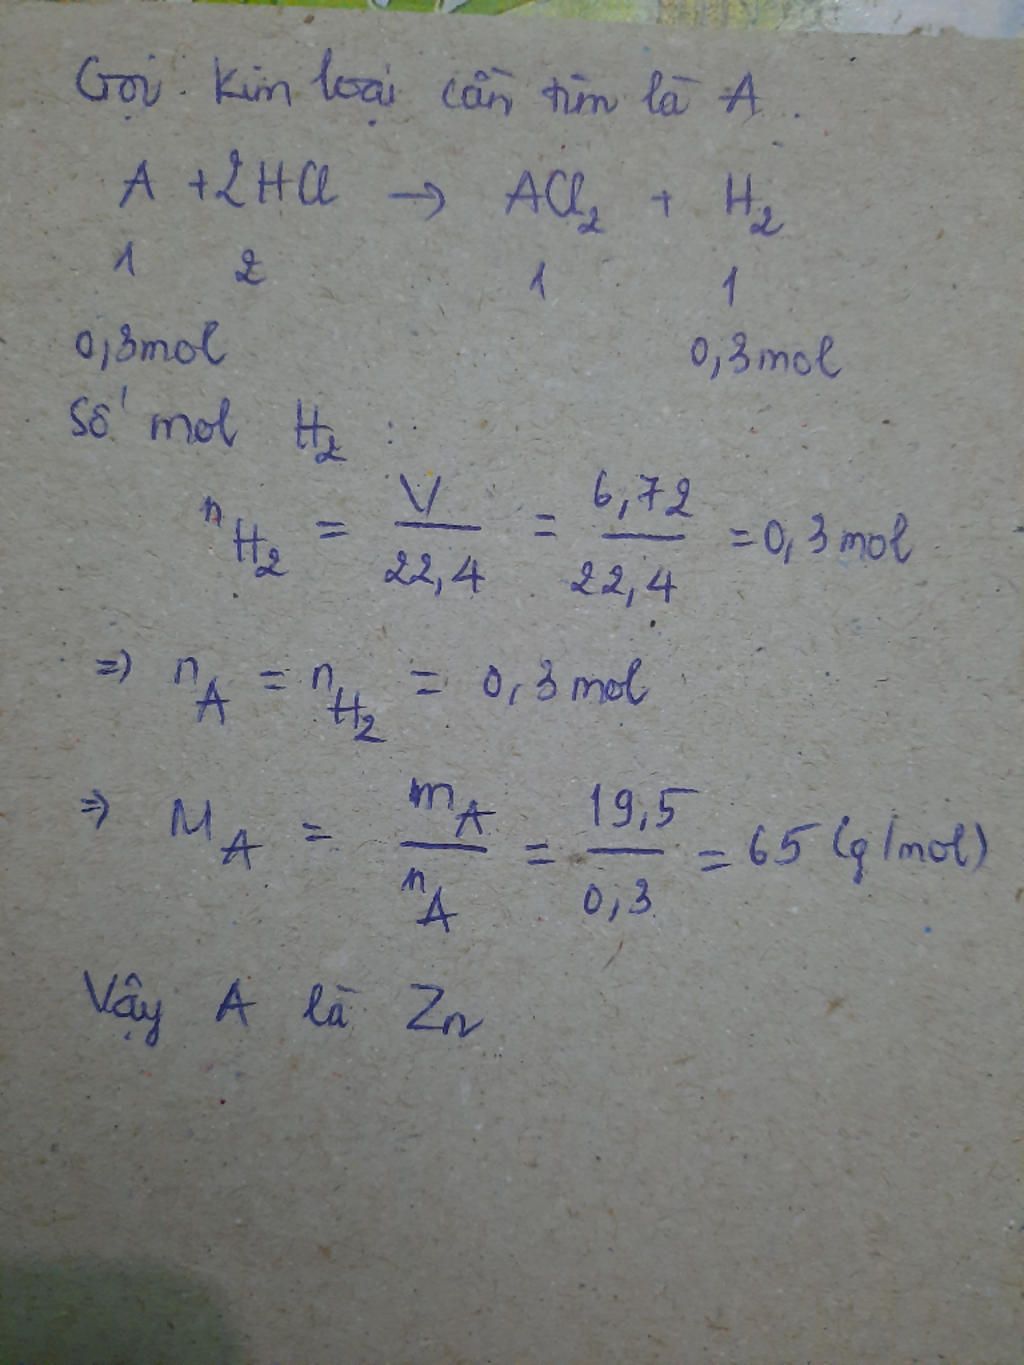 Gọi kim loại cần tìm là A.
A + 2HCl → ACl₂ + H₂
1 2 1 1
0,3mol 0,3mol
Số mol H₂ :
n_H₂ = V/22,4 = 6,72/22,4 = 0,3mol
=> n_A = n_H₂ = 0,3mol
=> M_A = m_A/n_A = 19,5/0,3 = 65 (g/mol)
Vậy A là Zn